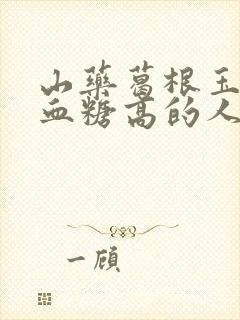 山藥葛根玉
血糖高的人
一顧